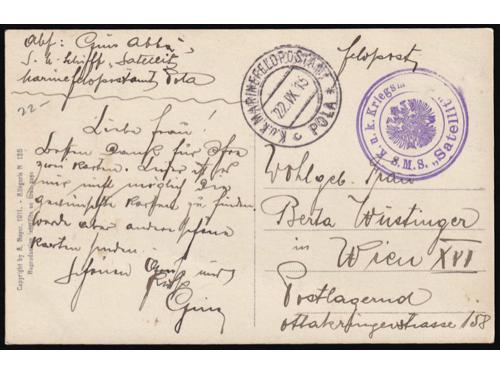 Abs: Gino Abbà
S. u. Schiff „Satellit
Marinefeldpostamt Pola
22-
Feldpost
K.u.K. MARINEFELDPOSTAMT
22.IX.15
c POLA *
K. u. k. Kriegsm
S.M.S. „Satellit
Liebe Frau!
Besten Dank für Ihre
zwei Karten. Leider ist es
mir nicht möglich die
gewünschte Karten zu finden,
werde aber andere schöne
Karten senden.
Schönen Gruß und
Kuß
Gino
Wohlgeb. Frau
Berta Wüstinger
in
Wien XVI
Postlagernd
Ottakringerstrasse 158
Copyright by A. Beyer, 1911. - Königerle N 135